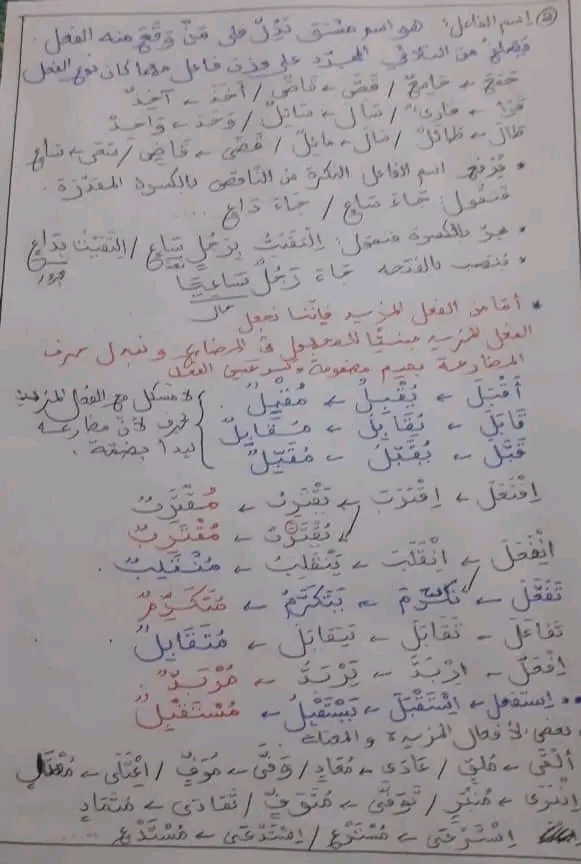 إسم الفاعل: هو اسم مشتق تدُلّ على مَنْ وقَعَ منه الفعل.
فيصاغ من الثلاثي المجرّد على وزن فاعل مهما كان نوع الفعل
جَمَحَ ← جَامِحٌ / قَصَّ ← قَاصٌّ / أَخَذَ ← آخِذٌ
قرَأ ← قَارِئٌ / سَأل ← سَائِلٌ / وَحَدَ ← وَاحِدٌ
طَالَ ← طَائلٌ / مَال ← مائِلٌ / قَضَى ← قَاضٍ / سَعَى ← سَاعٍ
* فيُرفع اسم الفاعل النكرة من الناقص بالكسرة المقدّرة.
فنقول: جَاءَ سَاعٍ / جَاءَ دَاعٍ ...
* يجرّ بالكسرة فنقول: اِلْتَقَيْتُ بِرَجُلٍ سَاعٍ / اِلْتَقَيْتُ بِدَاعٍ
نعت مجرور
* فينصب بالفتحة جَاءَ رَجُلٌ سَاعِيًا
حال
* أمّا من الفعل المزيد فإنّنا نجعل
الفعل المزيد مبنيًّا للمجهول في المضارع و نبدل حرف
المضارعة بميم مضمومة ونكسر عين الفعل
أَقْبَلَ ← يُقْبِلُ ← مُقْبِلٌ
قَابَلَ ← يُقَابِلُ ← مُقَابِلٌ
قَبَّلَ ← يُقَبِّلُ ← مُقَبِّلٌ
لا مشكل مع الفعل المزيد
بحرف لأنّ مضارعه
يبدأ بضمّة.
اِفْتَعَلَ ← اِقْتَرَبَ ← يَقْتَرِبُ ← مُقْتَرِبٌ
← يُقْتَرَبُ ← مُقْتَرِبٌ
اِنْفَعَلَ ← اِنْقَلَبَ ← يَنْقَلِبُ ← مُنْقَلِبٌ
تَفَعَّلَ ← تَكَرَّمَ ← يَتَكَرَّمُ ← مُتَكَرِّمٌ
تَفَاعَلَ ← تَقَابَلَ ← يَتَقَابَلُ ← مُتَقَابِلٌ
اِفْعَلَّ ← اِرْبَدَّ ← يَرْبَدُّ ← مُرْبَدٌّ
اِستفعل ← اِسْتَقْبَلَ ← يَسْتَقْبِلُ ← مُسْتَقْبِلٌ
بعض الأفعال المزيدة و المعتلة
أَلْقَى ← مُلْقٍ / عَادَى ← مُعَادٍ / وَفَّى ← مُوَفٍّ / اِعْتَلَى ←
اِنْبَرَى ← مُنْبَرٍ / تَوَفَّى ← مُتَوَفٍّ / تَمَادَى ← مُتَمَادٍ
اِسْتَرْعَى ← مُسْتَرْعٍ / اِسْتَدْعَى ← مُسْتَدْعٍ ...